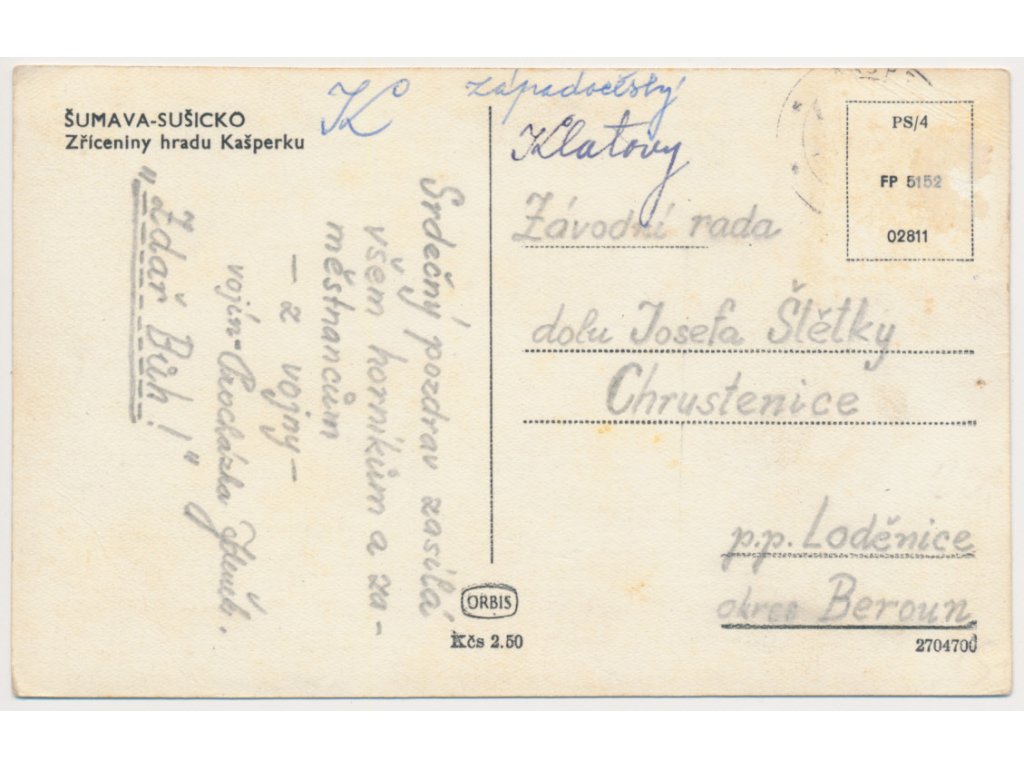 ŠUMAVA-SUŠICKO
Zříceniny hradu Kašperku
K
západočeský
Klatovy
PS/4
FP 5152
02811
Srdečný pozdrav zasílá
všem horníkům a za-
městnancům
— z vojny —
vojín - Procházka
"Zdař Bůh!"
Závodní rada
dolu Josefa Štětky
Chrustenice
p.p. Loděnice
okres Beroun
ORBIS
Kčs 2.50
2704700